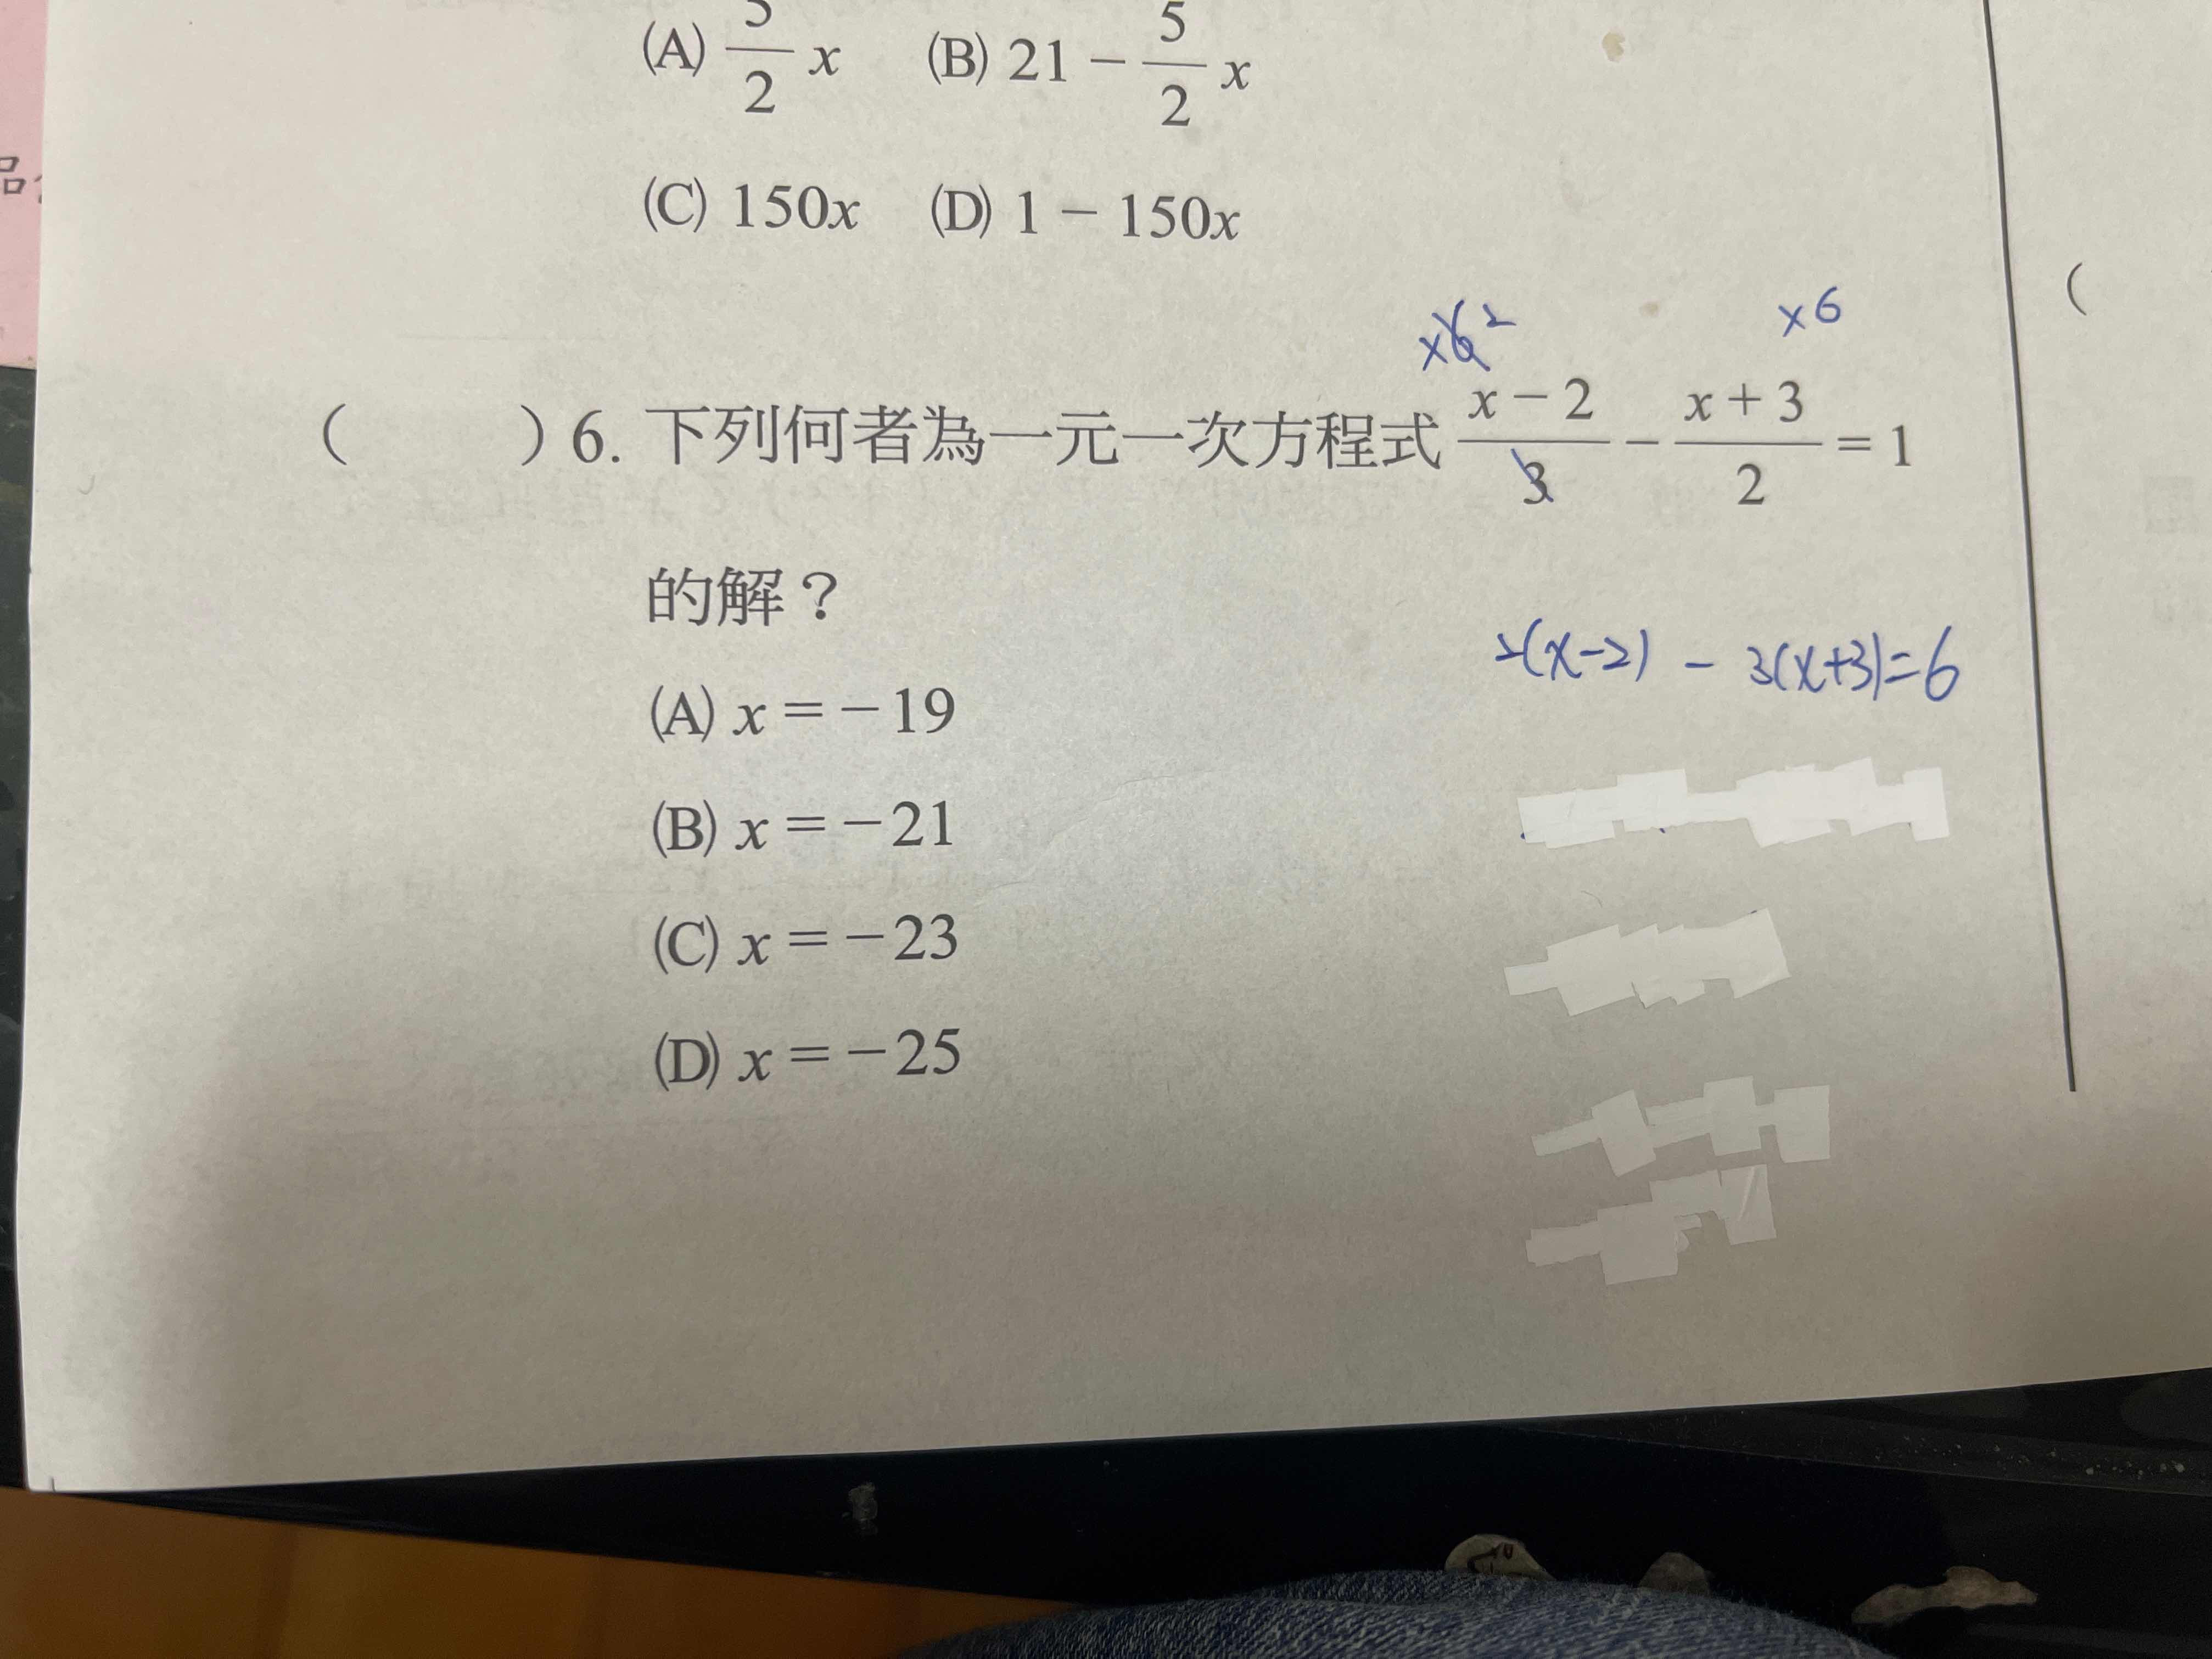 (A) 5/2 x (B) 21 − 5/2 x
(C) 150x (D) 1 − 150x
×6 2 ×6
( ) 6. 下列何者為一元一次方程式 (x − 2)/3 − (x + 3)/2 = 1
的解？
2(x−2) − 3(x+3)=6
(A) x = −19
(B) x = −21
(C) x = −23
(D) x = −25
(
品